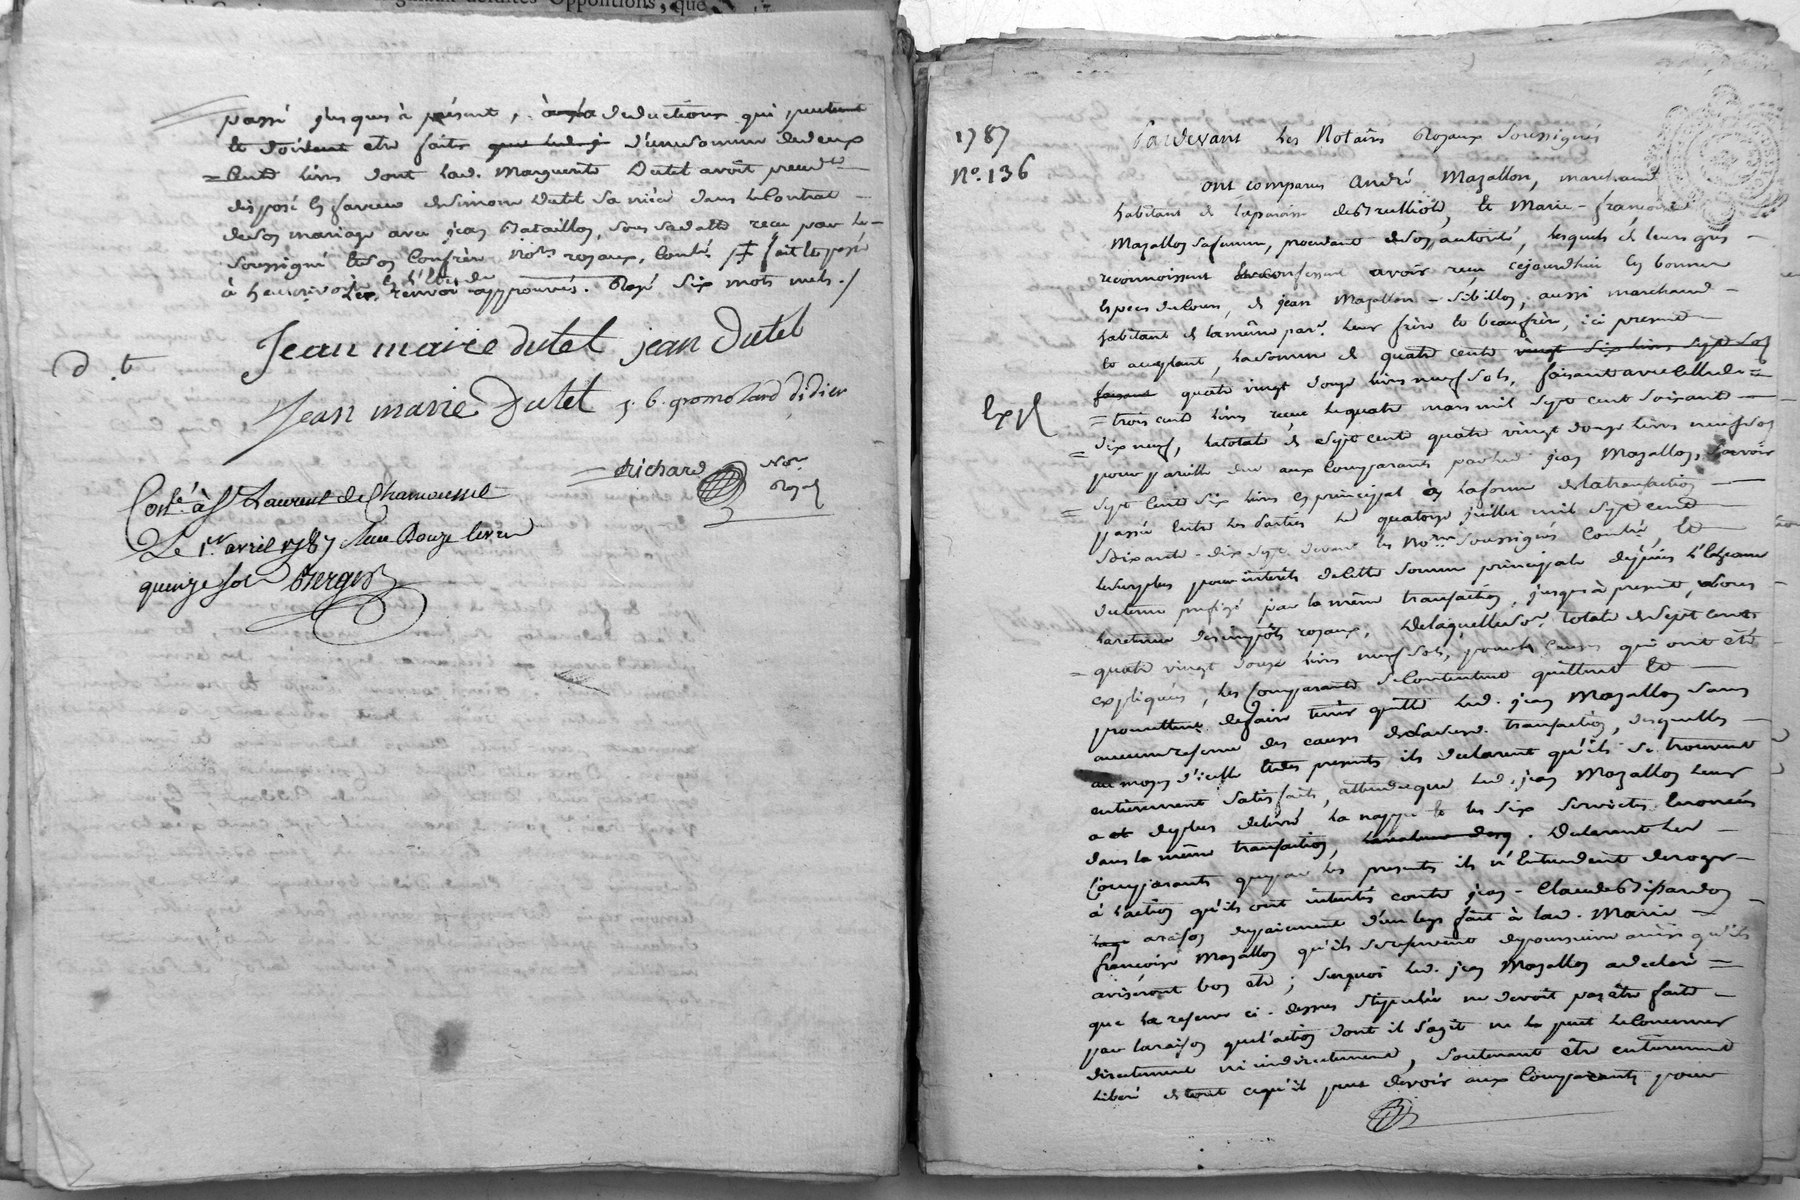 deffaites Oppositions, que
passé jusques à présent, à deductions qui peuvent
et doivent etre faites d'une somme de deux
=cents livres dont lad. Marguerite Dutel avoit precedt
disposé en faveur de Simone Dutel sa niéce dans le Contrat
de son mariage avec jean Bataillon, sous sa datte recu par le
soussigné et son Confrère Nores royaux, Conlé ‡ fait et passé
à le renvoi approuvés. Rayé six mots nuls./
Jean marie dutel jean Dutel
D. t
Jean marie Dutel j. b. gromolard didier
Richard Nore Royal
Conlé à St Laurent de Chamousset
Le 1er avril 1787 Reçu Douze livres
quinze sols Berger
1787
No. 136
Pardevant les Notaires Royaux Soussignés
ont comparus André Mazallon, marchand
habitant de la paroisse de Brullioles, et Marie-françoise
Mazallon sa femme, procedant de son autorité, lesquels de leurs grés
reconnoissent et confessent avoir reçu cejourd'hui en bonnes
Especes de Cours, de jean Mazallon-Sibillon, aussi marchand
habitant de la même parse. leur frère et beaufrère, ici present
et acceptant, la somme de quatre cents vingt six livres sept sols
Expé
faisant quatre vingt douze livres neuf sols, faisant avec Celle de
=trois cents livres, reçue le quatre mars mil sept cent soixante
=dix neuf, la totale de sept cents quatre vingt douze livres neuf sols
pour pareille due aux Comparants par led. jean Mazallon, Savoir
=sept Cents six livres en principal en la forme de la transaction
passée Entre les Parties le quatorze juillet mil sept cent
soixante-dix sept devant les Nores Soussignés Conlée, Et
le surplus pour intérêts de cette somme principale depuis l'Echéance
du terme prefixé par la même transaction, jusques à present, sous
la retenue des impôts royaux, De laquelle some. totale de sept cents
=quatre vingt douze livres neuf sols, pour les causes qui ont été
expliquées, les Comparants se Contentent quittent Et
promettent de faire tenir quitte led. jean Mazallon sans
aucune reserve des causes de lad. transaction, desquelles
au moyen d'icelle et des presentes ils declarent qu'ils se trouvent
entierement satisfaits, attendu que led. jean Mazallon leur
a de plus delivré la nappe et les six serviettes Enoncées
dans la même transaction, . Declarent les
Comparants que par les presentes ils n'Entendent deroger
à l'action qu'ils ont intentés contre jean-Claude Bissardon
a raison du payement d'un legs fait à lad. Marie
françoise Mazallon qu'ils se reservent de poursuivre ainsi qu'ils
aviseront bon etre; surquoi led. jean Mazallon a declaré
que la reserve ci-dessus stipulée ne devoit pas être faite
par la raison que l'action dont il s'agit ne le peut le Concerner
directement ni indirectement, soutenant être entierement
liberé de tout ce qu'il peut devoir aux Comparants pour